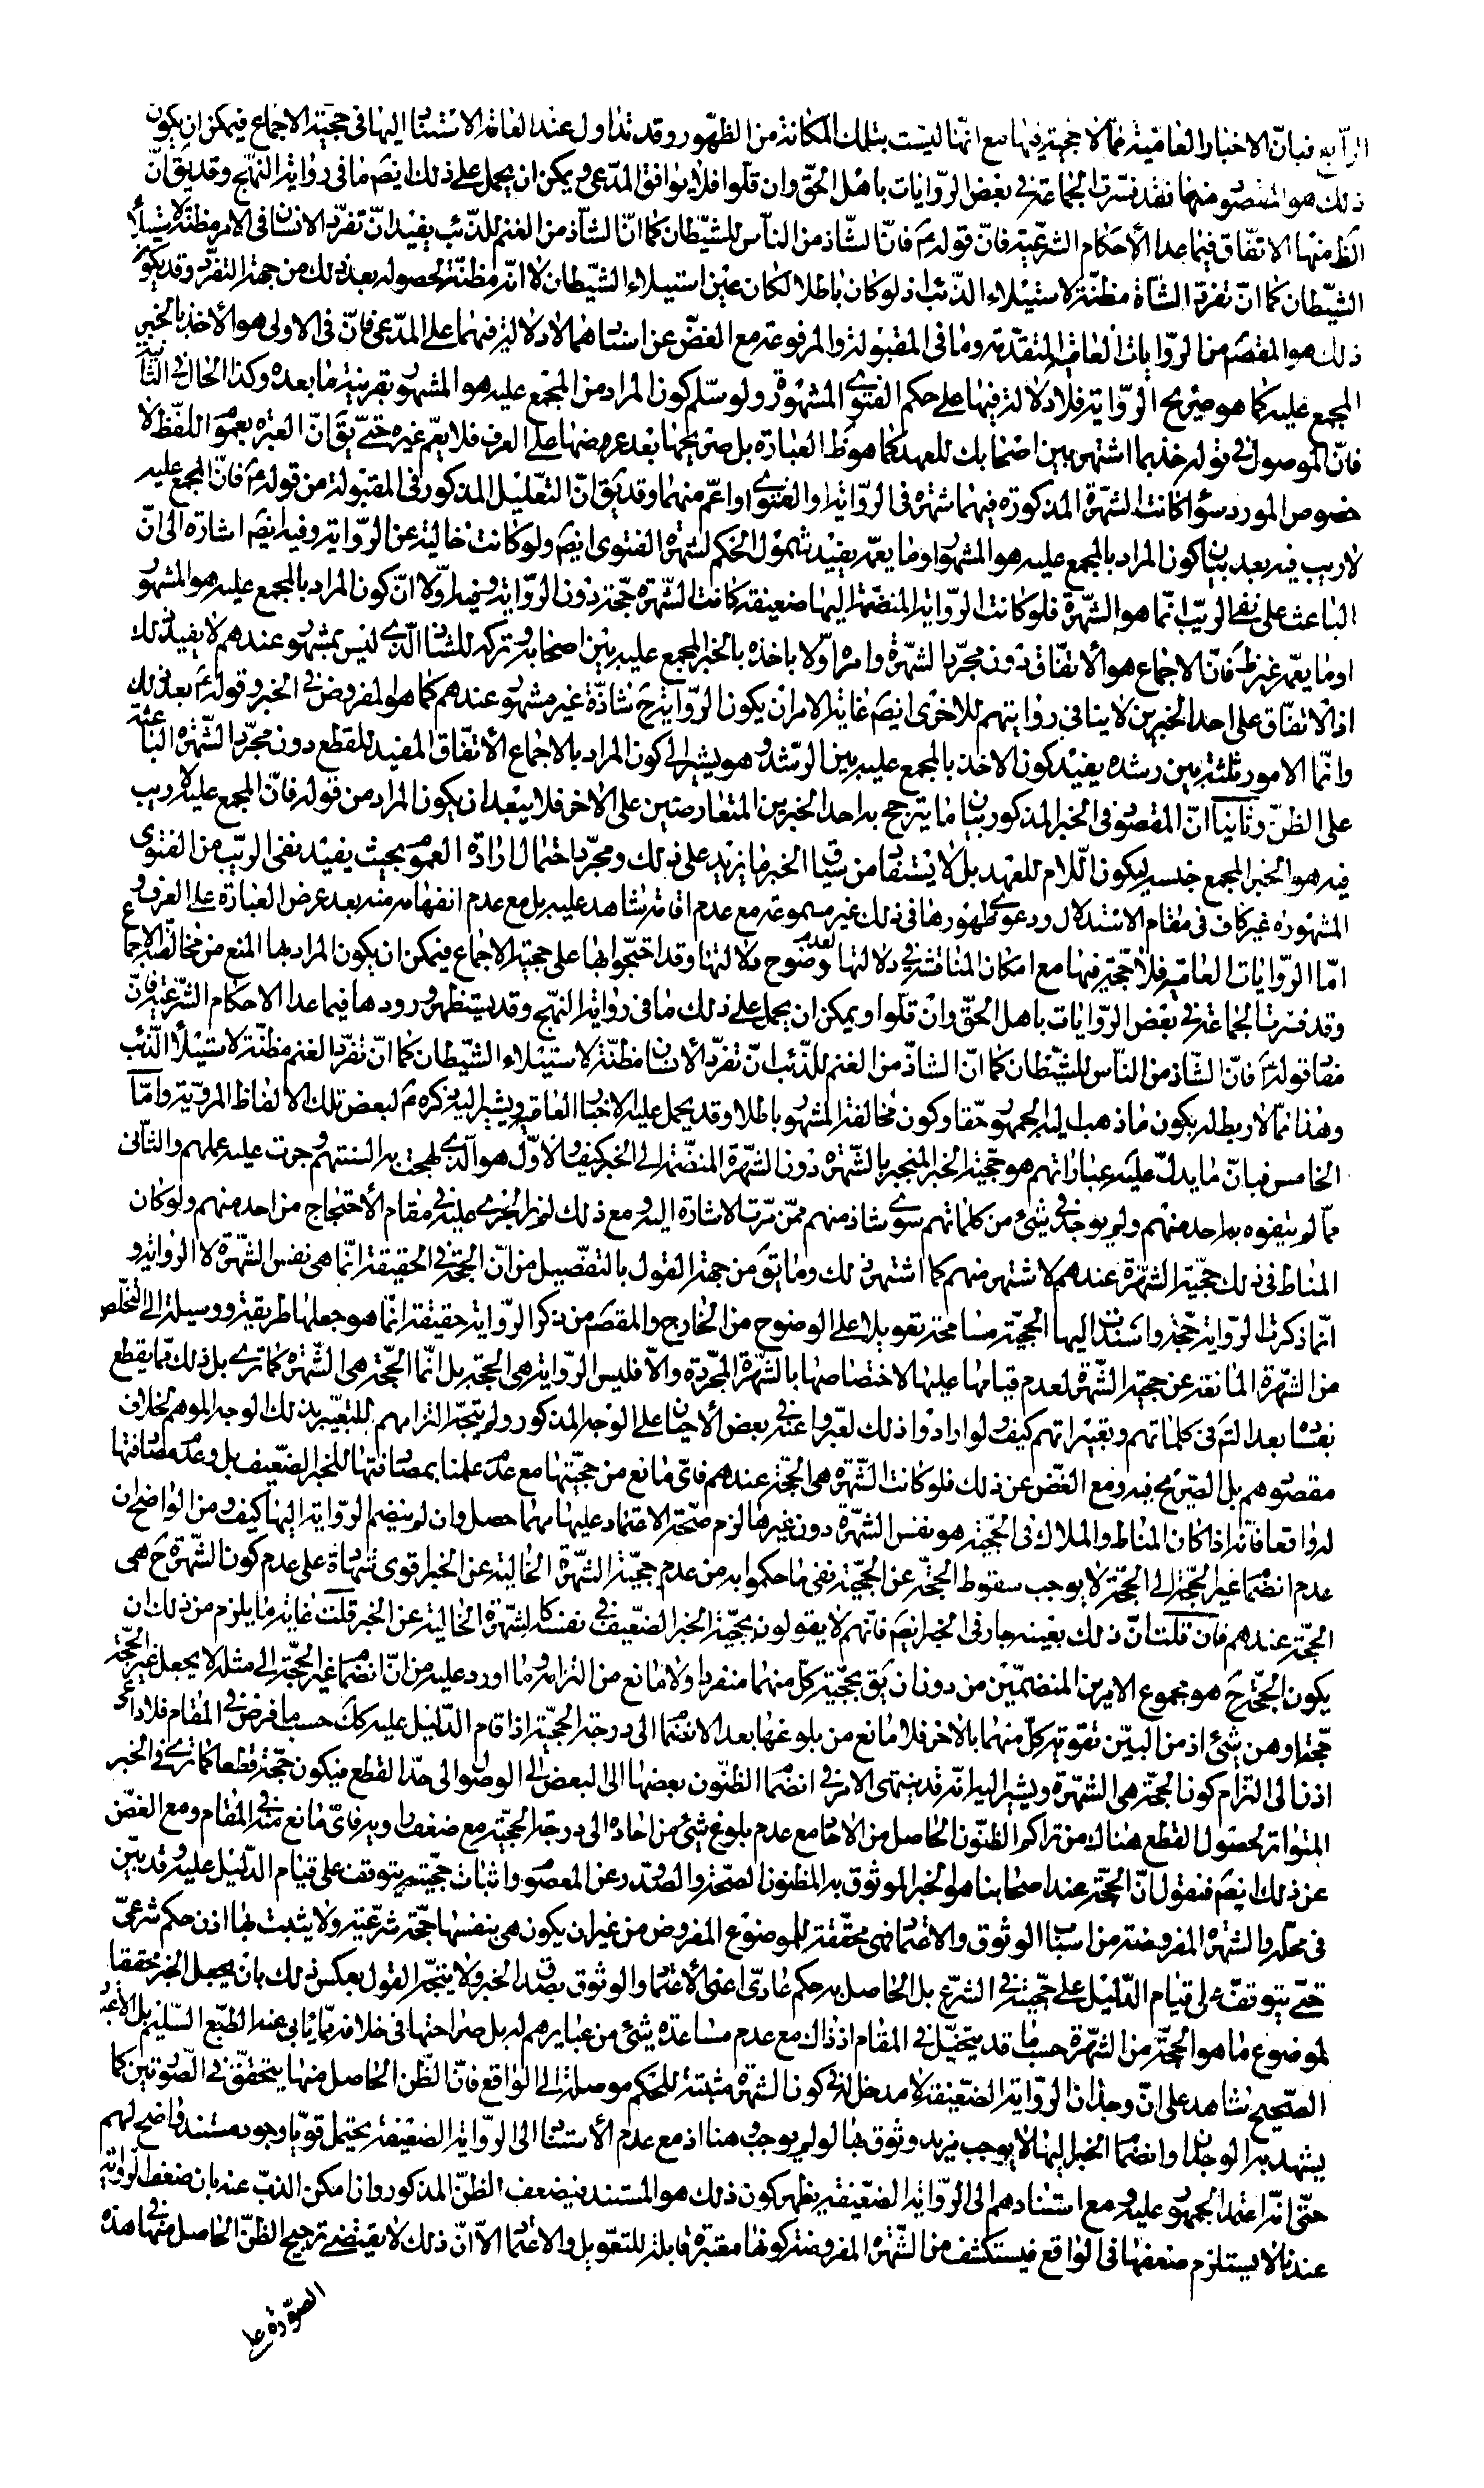 الرابع فبان الاخبار العامية مما لا حجية فيها مع انها ليست بتلك المكانة من الظهور وقد تداول عند العامة الاستناد اليها في حجية الاجماع فيمكن ان يكون
ذلك هو المقصود منها فقد فسرت الجماعة في بعض الروايات باهل الحق وان قلوا فلا يوافق المدعى ويمكن ان يحمل على ذلك ايضم ما في رواية النهج وقد يق ان
الظ منها الاتفاق فيما عدا الأحكام الشرعية فان قوله ع فان الشاذ من الناس للشيطان كما ان الشاذ من الغنم للذئب يفيد ان تفرد الانسان في الامر مظنة لاستيلاء
الشيطان كما ان تفرد الشاة مظنة لاستيلاء الذئب اذ لو كان باطلا لكان عين استيلاء الشيطان لا انه مظنة لحصوله بعد ذلك من جهة التفرد وقد يكون
ذلك هو المقصم من الروايات العامية المتقدمة وما في المقبولة والمرفوعة مع الغض عن اسنادهما لا دلالة فيهما على المدعى فان في الاولى هو الأخذ بالخبر
المجمع عليه كما هو صريح الرواية فلا دلالة فيها على حكم الفتوى المشهورة ولو سلم كون المراد من المجمع عليه هو المشهور بقرينة ما بعده وكذا الحال في الثانية
فان الموصول في قوله خذ بما اشتهر بين اصحابك للعهد كما هو ظ العبارة بل صريحها بعد عرضها على العرف فلا يعم غيره حتى يق ان العبرة بعموم اللفظ لا
خصوص المورد سواء كانت الشهرة المذكورة فيهما شهرة في الرواية او الفتوى او اعم منهما وقد يق ان التعليل المذكور في المقبولة من قوله ع فان المجمع عليه
لا ريب فيه بعد بيان كون المراد بالمجمع عليه هو المشهور او ما يعمه يفيد شمول الحكم لشهرة الفتوى ايضم ولو كانت خالية عن الرواية وفيه ايضم اشارة الى ان
الباعث على نفي الريب انما هو الشهرة فلو كانت الرواية المنضمة اليها ضعيفة كانت الشهرة حجة دون الرواية وفيه اولا ان كون المراد بالمجمع عليه هو المشهور
او ما يعمه غير ظ فان الاجماع هو الأتفاق دون مجرد الشهرة وامره اولا باخذه بالخبر المجمع عليه بين اصحابه وتركه للشاذ الذي ليس بمشهور عندهم لا يفيد ذلك
اذ الاتفاق على احد الخبرين لا ينافي روايتهم للاخرى ايضم غاية الامر ان يكون الرواية ح شاذة غير مشهور عندهم كما هو المفروض في الخبر وقوله ع بعد ذلك
وانما الامور ثلثة بين رشده يفيد كون الاخذ بالمجمع عليه بين الرشد وهو يشير الى كون المراد بالاجماع الأتفاق المفيد للقطع دون مجرد الشهرة الباعثة
على الظن وثانيا ان المقصود في الخبر المذكور بيان ما يترجح به احد الخبرين المتعارضين على الاخر فلا يبعد ان يكون المراد من قوله فان المجمع عليه لا ريب
فيه هو الخبر المجمع خلسه ليكون اللام للعهد بل لا يستفاد من سياق الخبر ما يزيد على ذلك ومجرد احتمال ارادة العموم بحيث يفيد نفي الريب من الفتوى
المشهورة غير كاف في مقام الاستدلال ودعوى ظهورها في ذلك غير مسموعة مع عدم اقامة شاهد عليه بل مع عدم انفهامه منه بعد عرض العبارة على العرف و
اما الروايات العامية فلا حجية فيها مع امكان المناقشة في دلالتها لعدم وضوح دلالتها وقد احتجوا بها على حجية الاجماع فيمكن ان يكون المراد بها المنع من مخالفة الاجماع
وقد فسرت الجماعة في بعض الروايات باهل الحق وان قلوا ويمكن ان يحمل على ذلك ما في رواية النهج وقد يستظهر ورودها فيما عدا الاحكام الشرعية فان
مفاد قوله ع فان الشاذ من الناس للشيطان كما ان الشاذ من الغنم للذئب ان تفرد الأنسان مظنة لاستيلاء الشيطان كما ان تفرد الغنم مظنة لاستيلاء الذئب
وهذا مما لا ربط له بكون ما ذهب اليه الجمهور حقا وكون مخالفة المشهور باطلا وقد يحمل عليه الاخبار العامية ويشير اليه ذكره ع لبعض تلك الالفاظ المروية واما
الخامس فبان ما يدل عليه عباراتهم هو حجية الخبر المنجبر بالشهرة دون الشهرة المنضمة الى الخبر كيف والاول هو الذي لهجت به السنتهم وجرت عليه عملهم والثاني
مما لم يتفوه به احد منهم ولم يوجد في شيء من كلماتهم سوى شاذ منهم ممن مرت الاشارة اليه ومع ذلك لم يجر عليه في مقام الأحتجاج من احد منهم ولو كان
المناط في ذلك حجية الشهرة عندهم لاشتهر منهم كما اشتهر ذلك وما يق من جهة القول بالتفصيل من ان الحجة في الحقيقة انما هي نفس الشهرة لا الرواية و
انما ذكرت الرواية حجة واسندت اليها الحجية مسامحة تعويلا على الوضوح من الخارج والمقصم من ذكر الرواية حقيقة انما هو جعلها طريقة ووسيلة الى التخلص
من الشهرة المانعة عن حجية الشهرة لعدم قيامها عليها لاختصاصها بالشهرة المجردة والا فليس الرواية هي الحجة بل انما الحجة هي الشهرة كما ترى بل ذلك مما يقطع
بفساده بعد التم في كلماتهم وتعبيراتهم كيف ولو ارادوا ذلك لعبروا عنه في بعض الأحيان على الوجه المذكور ولم يتجه التزامهم للتعبير بذلك الوجه الموهم لخلاف
مقصودهم بل الصريح فيه ومع الغض عن ذلك فلو كانت الشهرة هي الحجة عندهم فاي مانع من حجيتها مع عدم علمنا بمصادفتها للخبر الضعيف بل وعدم مصادفتها
له واقعا فانه اذا كان المناط والملاك في الحجية هو نفس الشهرة دون غيرها لزم صحة الاعتماد عليها مهما حصل وان لم ينضم الرواية اليها كيف ومن الواضح ان
عدم انضمام غير الحجة الى الحجة لا يوجب سقوط الحجة عن الحجية نفي ما حكموا به من عدم حجية الشهرة الخالية عن الخبر اقوى شهادة على عدم كون الشهرة ح هي
الحجة عندهم فان قلت ان ذلك بعينه جار في الخبر ايضم فانهم لا يقولون بحجية الخبر الضعيف في نفسه كالشهرة الخالية عن الخبر قلت غاية ما يلزم من ذلك ان
يكون الحجة ح هو مجموع الامرين المنضمين من دون ان يق بحجية كل منهما منفردا ولا مانع من التزامه وما اورد عليه من ان انضمام غير الحجة الى مثله لا يجعل غير الحجة
حجة اوهن شيء اذ من البين تقوية كل منهما بالاخر فلا مانع من بلوغها بعد الانضمام الى درجة الحجية اذا قام الدليل عليه كك حسب ما فرض في المقام فلا داعي
اذن الى التزام كون الحجة هي الشهرة ويشير اليه انه قد ينتهى الامر في انضمام الظنون بعضها الى البعض الى الوصول الى حد القطع فيكون حجة قطعا كما ترى في الخبر
المتواتر لحصول القطع هناك من تراكم الظنون الحاصل من الاحاد مع عدم بلوغ شيء من احاده الى درجة الحجية مع ضعف راويه فاي مانع منه في المقام ومع الغض
عن ذلك ايضم فنقول ان الحجة عند اصحابنا هو الخبر الموثوق به المظنون الصحة والصدور عن المعصوم واثبات حجيته يتوقف على قيام الدليل عليه وقد بين
في محله والشهرة المفروضة من اسباب الوثوق والاعتماد فهي محققة للموضوع المفروض من غير ان يكون هي بنفسها حجة شرعية ولا يثبت بها اذن حكم شرعي
حتى يتوقف على قيام الدليل على حجيته في الشرع بل الحاصل به حكم عادي اعني الأعتماد والوثوق بصدق الخبر ولا يتجه القول بعكس ذلك بان يجعل الخبر محققا
لموضوع ما هو الحجة من الشهرة حسب ما قد يتخيل في المقام اذ ذاك مع عدم مساعدة شيء من عبايرهم له بل صراحتها في خلافه مما يأبى عنه الطبع السليم بل الاعتبار
الصحيح شاهد على ان وجدان الرواية الضعيفة لا مدخل له في كون الشهرة مثبتة للحكم موصلة الى الواقع فان الظن الحاصل منها يتحقق في الصورتين كما
يشهد به الوجدان وانضمام الخبر اليها لا يوجب مزيد وثوق بها لو لم يوجب وهنا اذ مع عدم الأستناد الى الرواية الضعيفة يحتمل قويا وجود مستند واضح لهم
حتى انه اعتمد الجمهور عليه ومع استنادهم الى الرواية الضعيفة يظهر كون ذلك هو المستند فيضعف الظن المذكور وان امكن الذب عنه بان ضعف الرواية
عندنا لا يستلزم ضعفها في الواقع فيستكشف من الشهرة المفروضة كونها معتبرة قابلة للتعويل والاعتماد الا ان ذلك لا يقتضي ترجيح الظن الحاصل منها في هذه
الصورة على